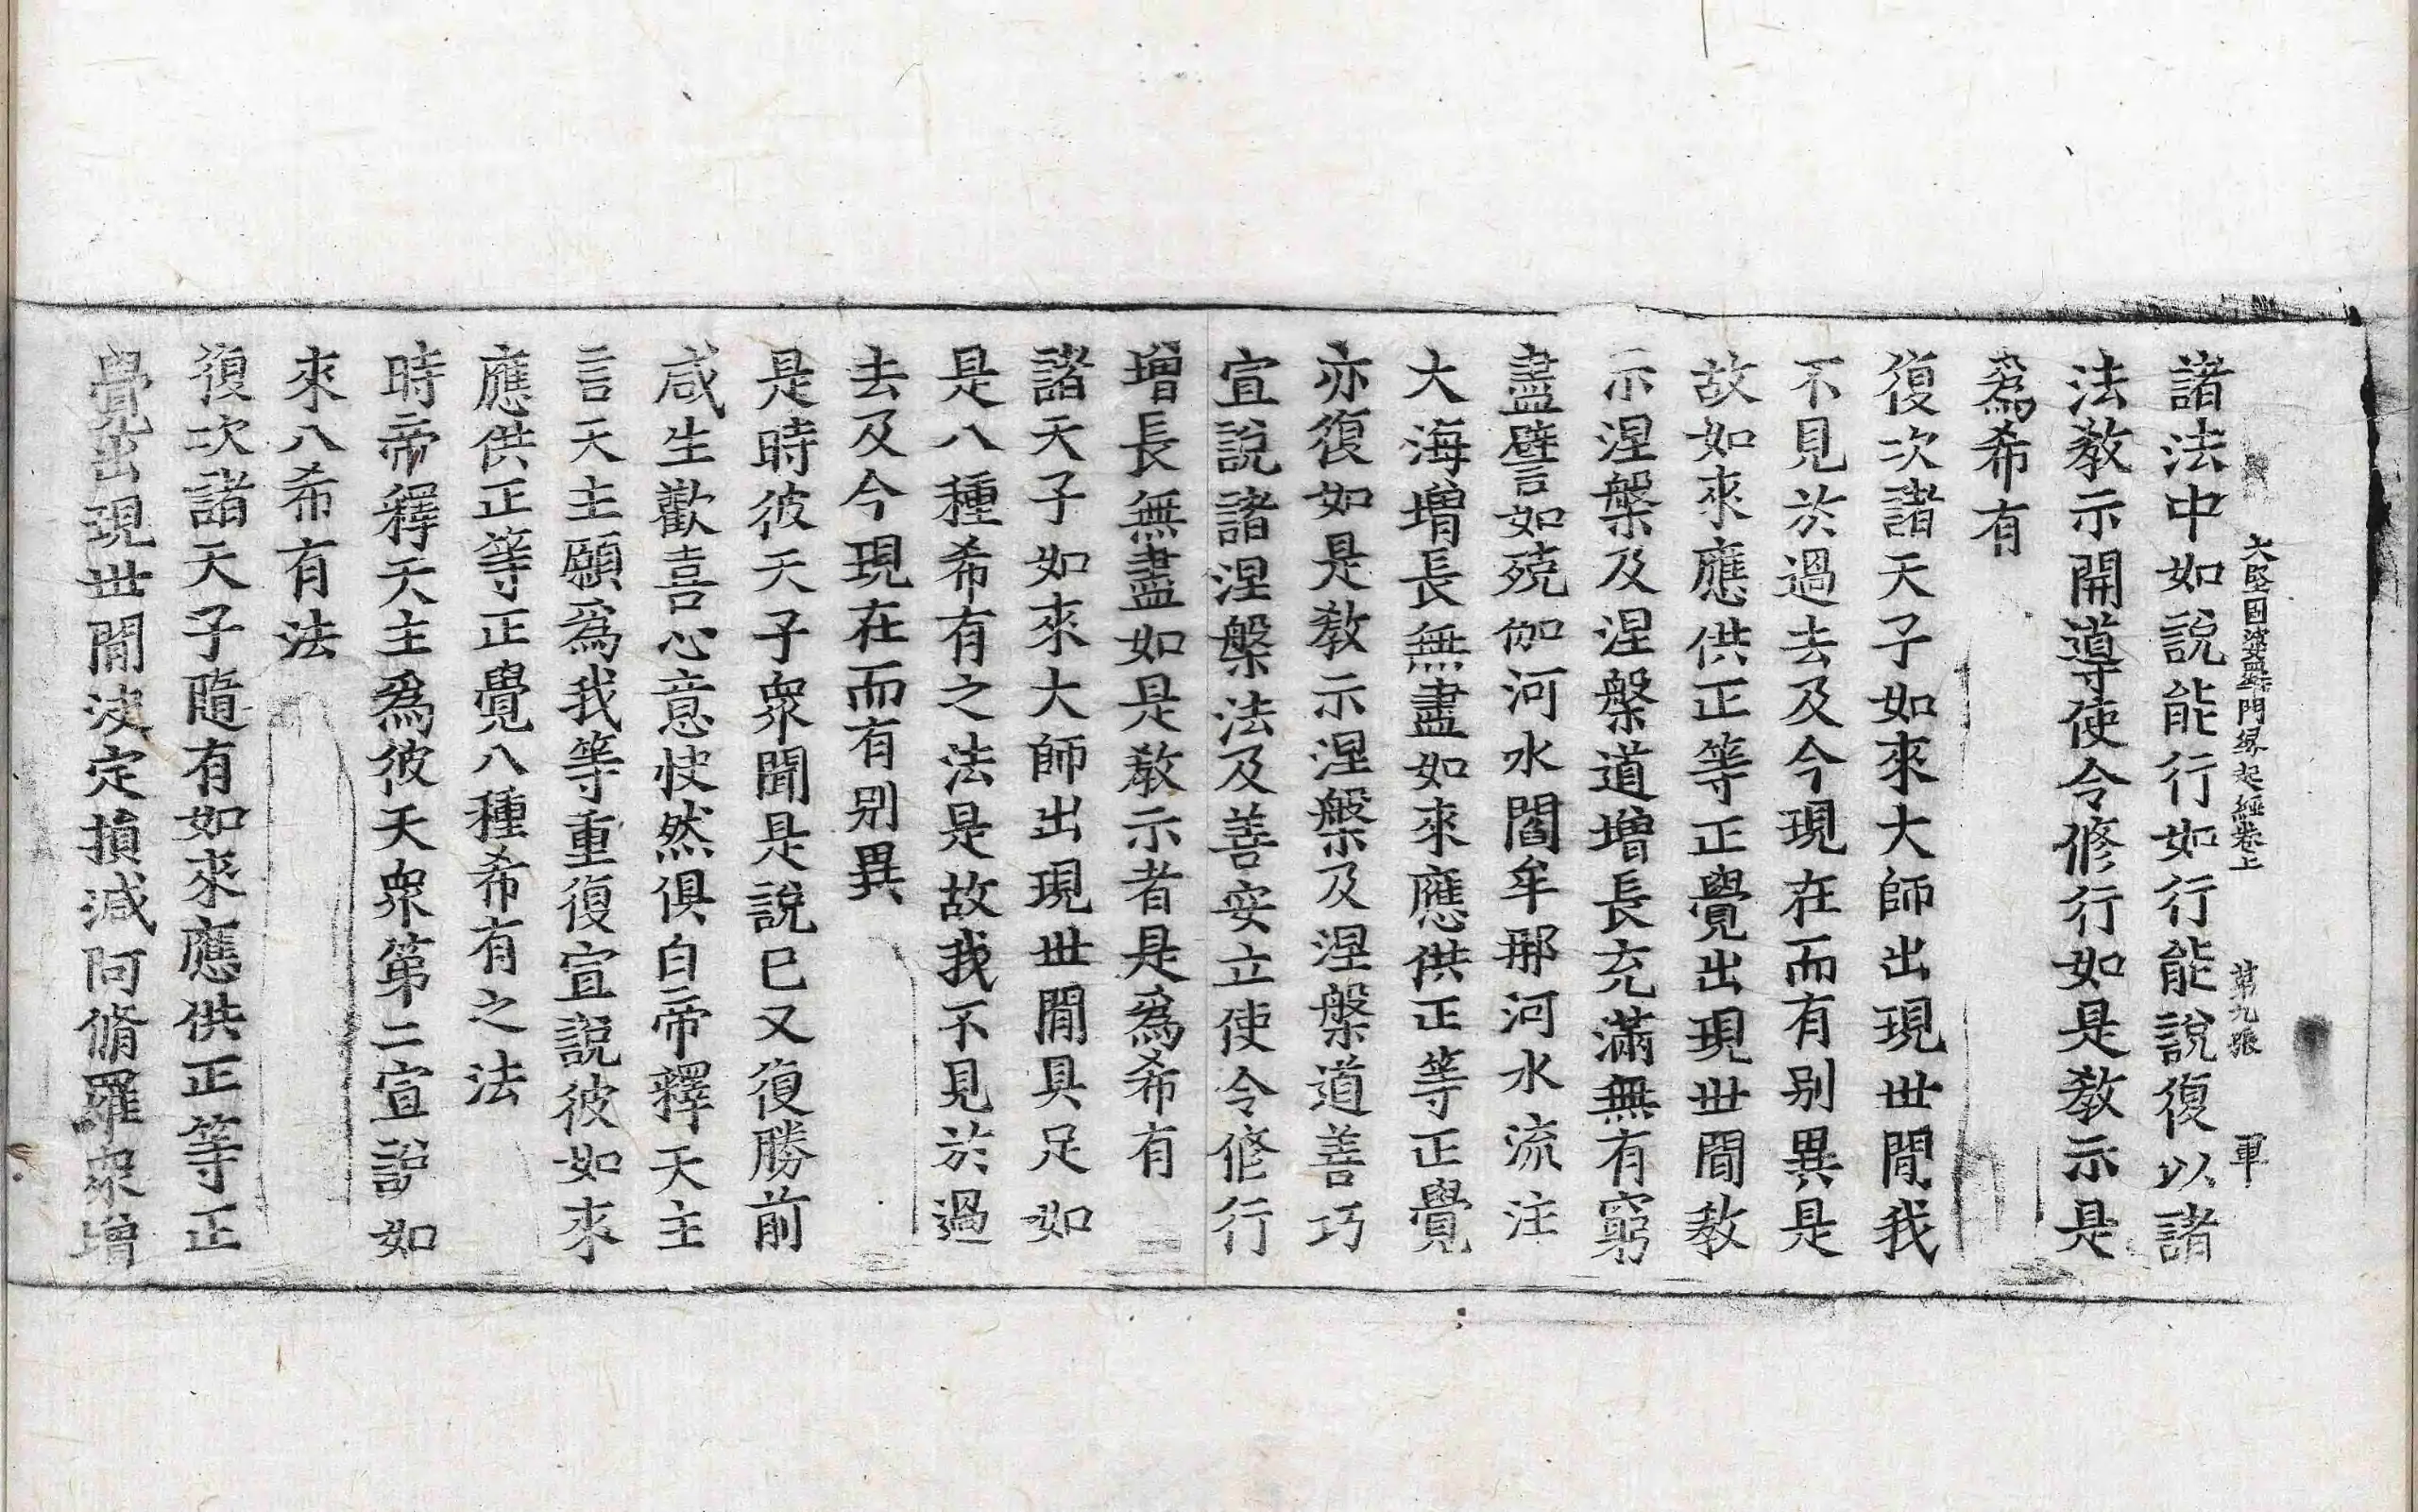 大堅固婆羅門緣起經卷上 第九張 軍
諸法中如說能行如行能說復以諸
法教示開導使令修行如是教示是
爲希有
復次諸天子如來大師出現世閒我
不見於過去及今現在而有別異是
故如來應供正等正覺出現世閒教
示涅槃及涅槃道增長充滿無有窮
盡譬如殑伽河水閻牟那河水流注
大海增長無盡如來應供正等正覺
亦復如是教示涅槃及涅槃道善巧
宣說諸涅槃法及善安立使令修行
增長無盡如是教示者是爲希有
諸天子如來大師出現世閒具足如
是八種希有之法是故我不見於過
去及今現在而有別異
是時彼天子衆聞是說已又復勝前
咸生歡喜心意快然俱白帝釋天主
言天主願爲我等重復宣說彼如來
應供正等正覺八種希有之法
時帝釋天主爲彼天衆第二宣說如
來八希有法
復次諸天子隨有如來應供正等正
覺出現世閒決定損減阿脩羅衆增